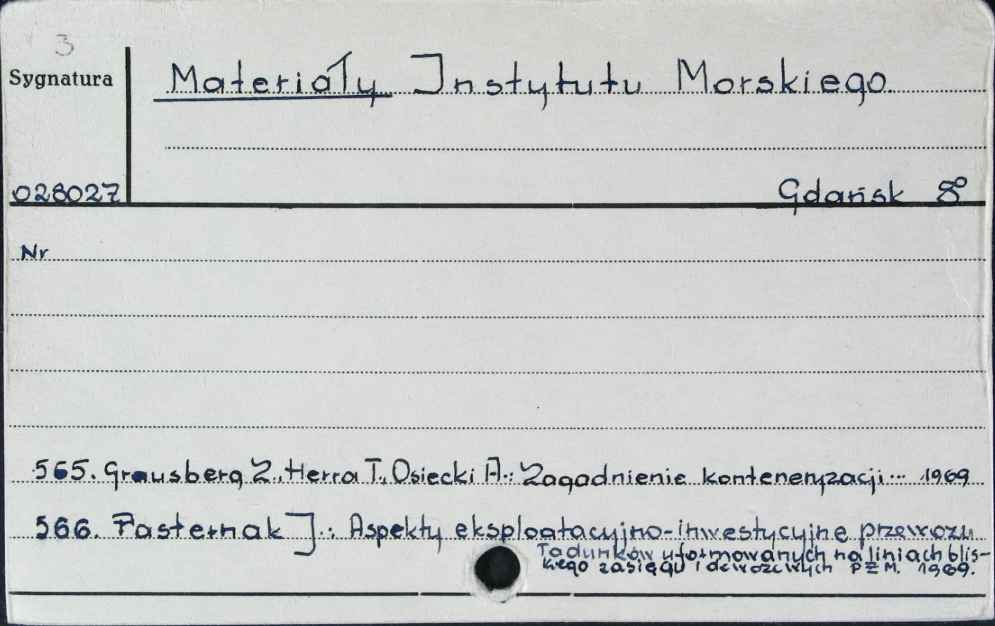 3
Sygnatura
Materiały Instytutu Morskiego
028027
Gdańsk 8°
Nr
565. Grausberg Z., Herra T., Osiecki A.: Zagadnienie konteneryzacji... 1969
566. Pasternak J.: Aspekty eksploatacyjno-inwestycyjne przewozu
ładunków uformowanych na liniach blis-
kiego zasięgu i dowozowych PŻM. 1969.